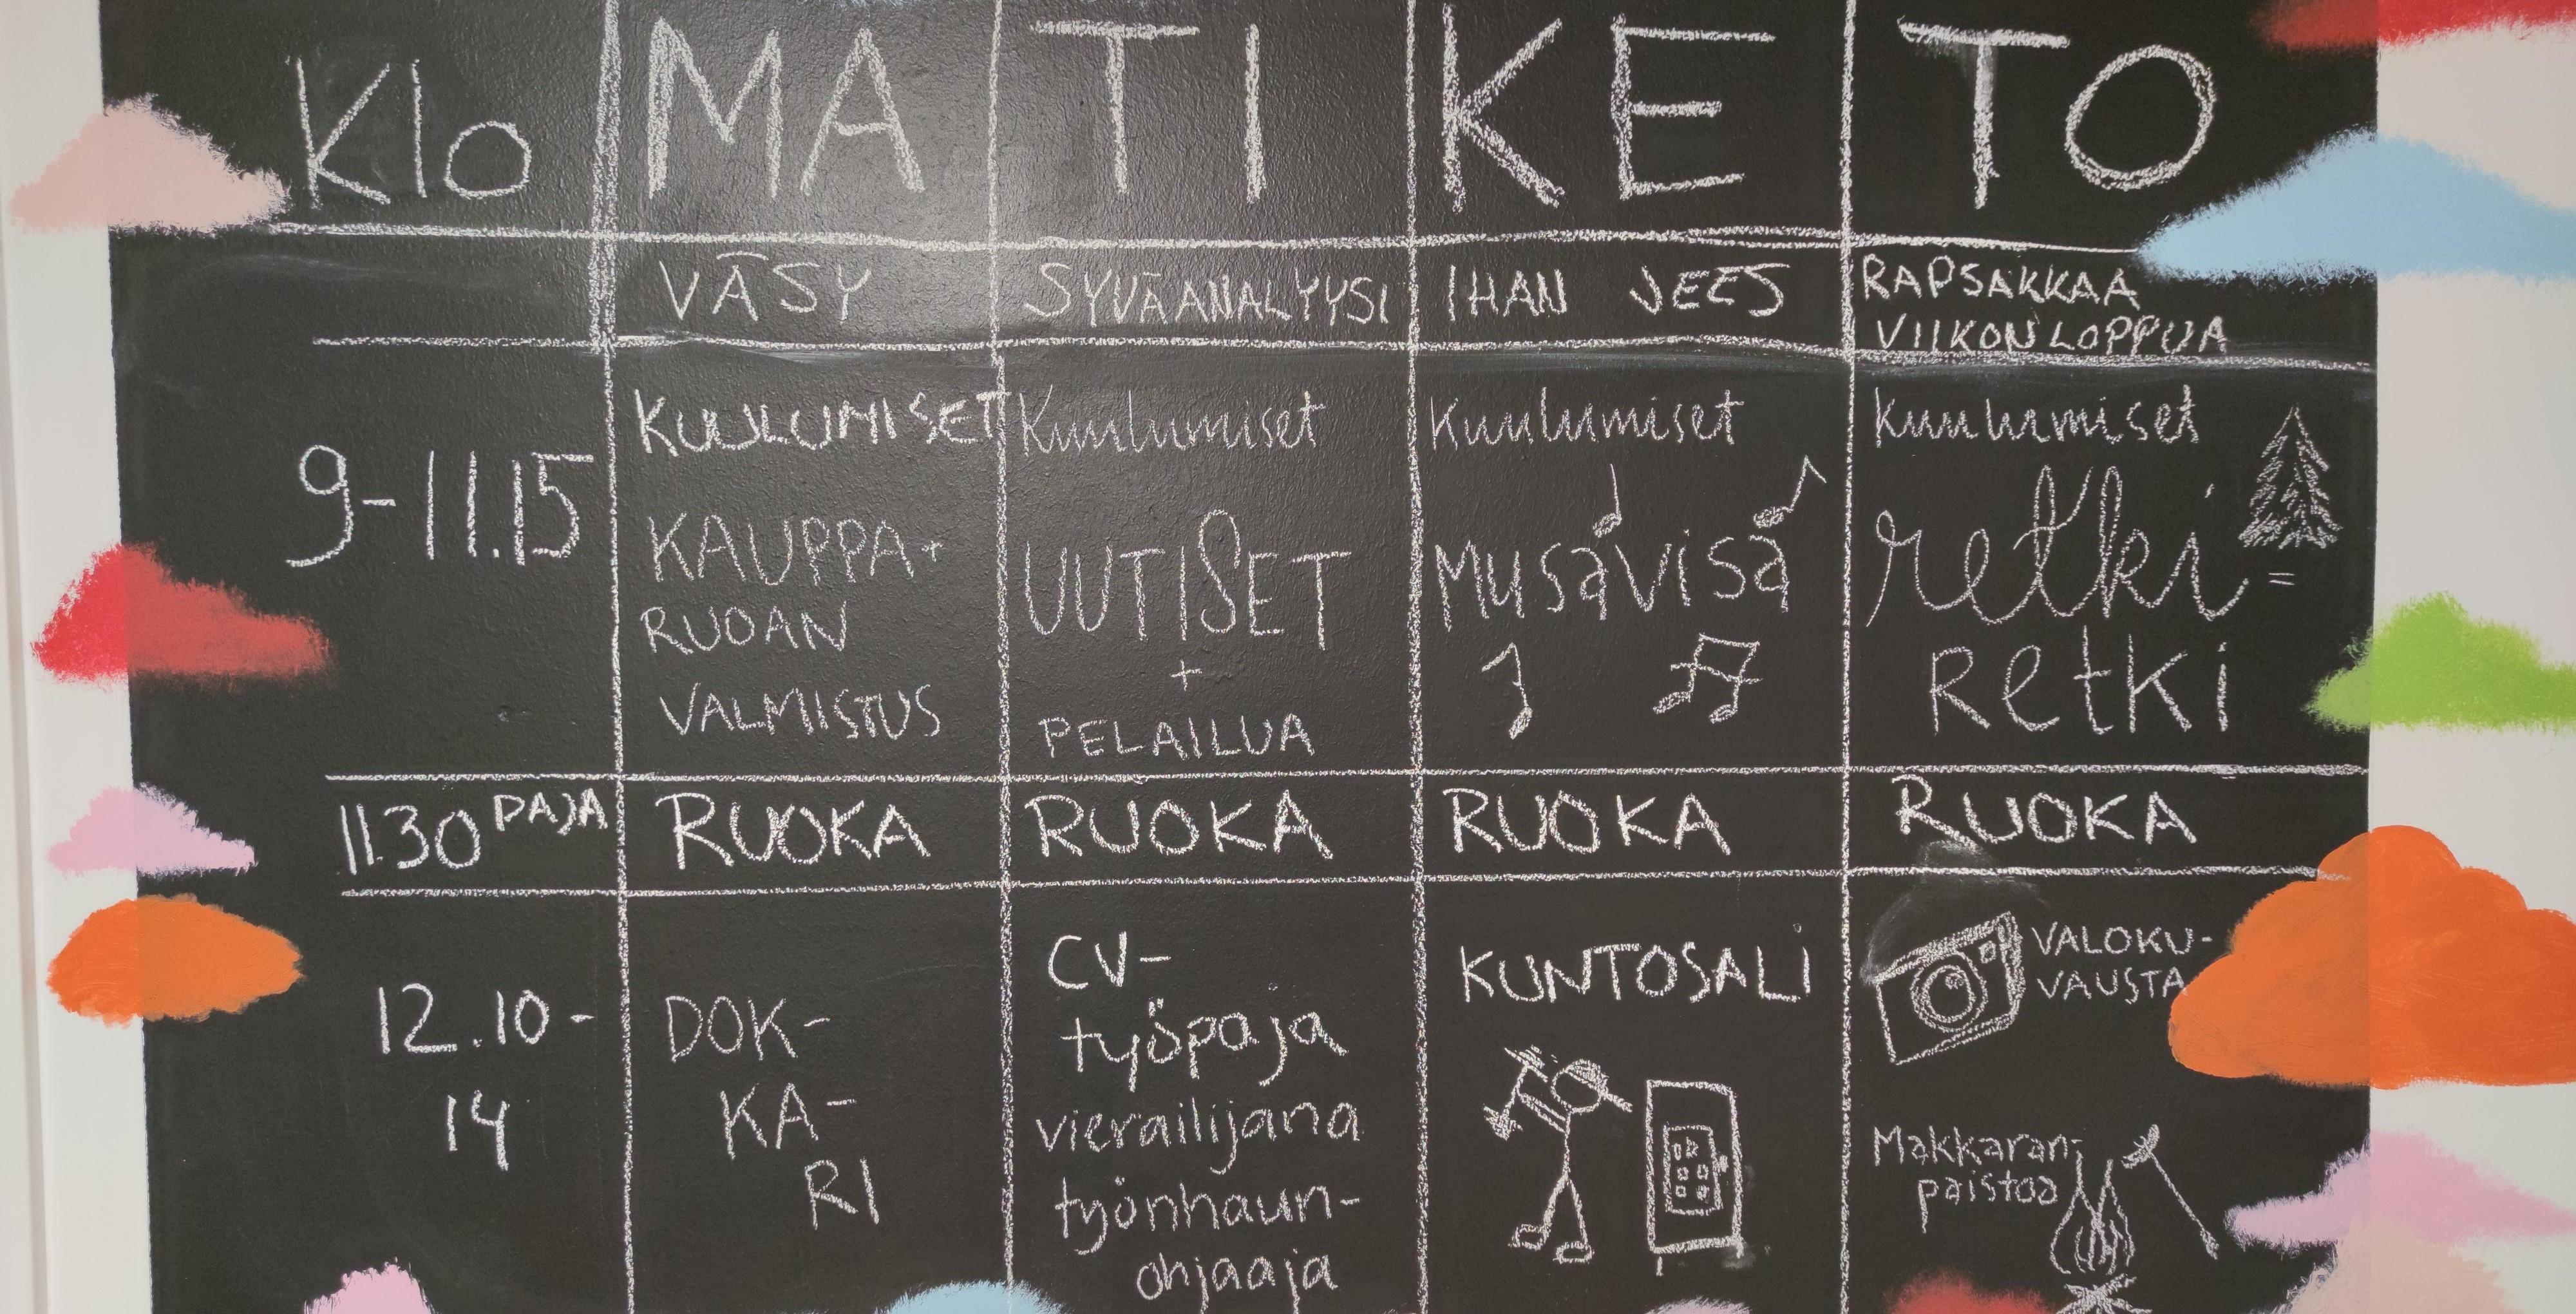 Klo MA TI KE TO
VÄSY SYVÄANALYYSI IHAN JEES RAPSAKKAA
VIIKONLOPPUA
9-11.15
KUULUMISET
KAUPPA+
RUOAN
VALMISTUS
Kuulumiset
UUTISET
+
PELAILUA
Kuulumiset
Musavisa
Kuulumiset
retki-
=
Retki
11.30 PAJA RUOKA RUOKA RUOKA RUOKA
12.10-
14
DOK-
KA-
RI
CV-
työpaja
vierailijana
työnhaun-
ohjaaja
KUNTOSALI
VALOKU-
VAUSTA
Makkaran-
paistoa